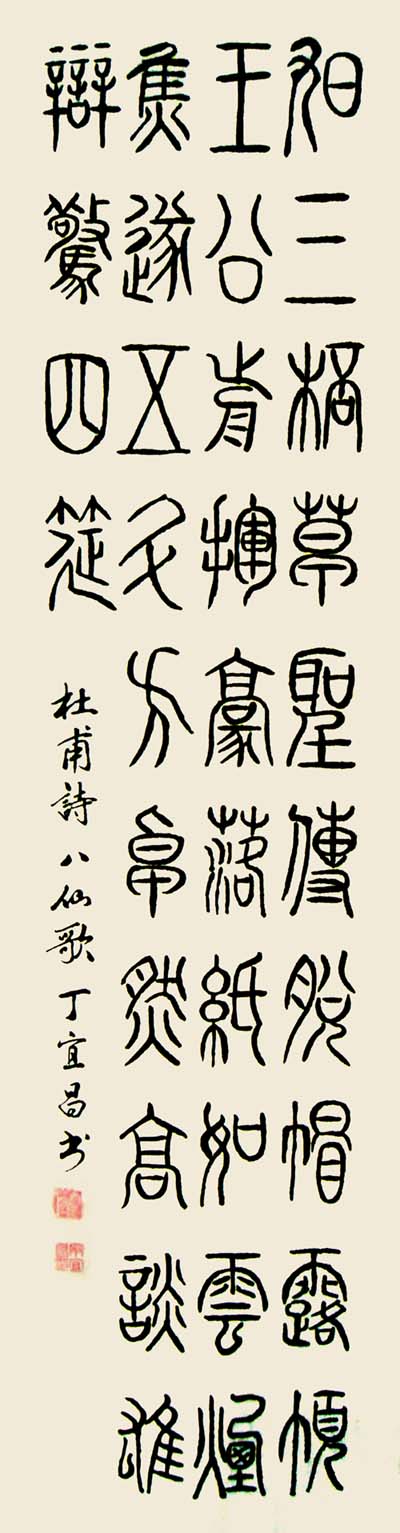 旭三桮草聖傳脫帽露頂
王公前揮豪落紙如雲煙
焦遂五斗方卓然高談雄
辯驚四筵
杜甫詩八仙歌丁宜昌书